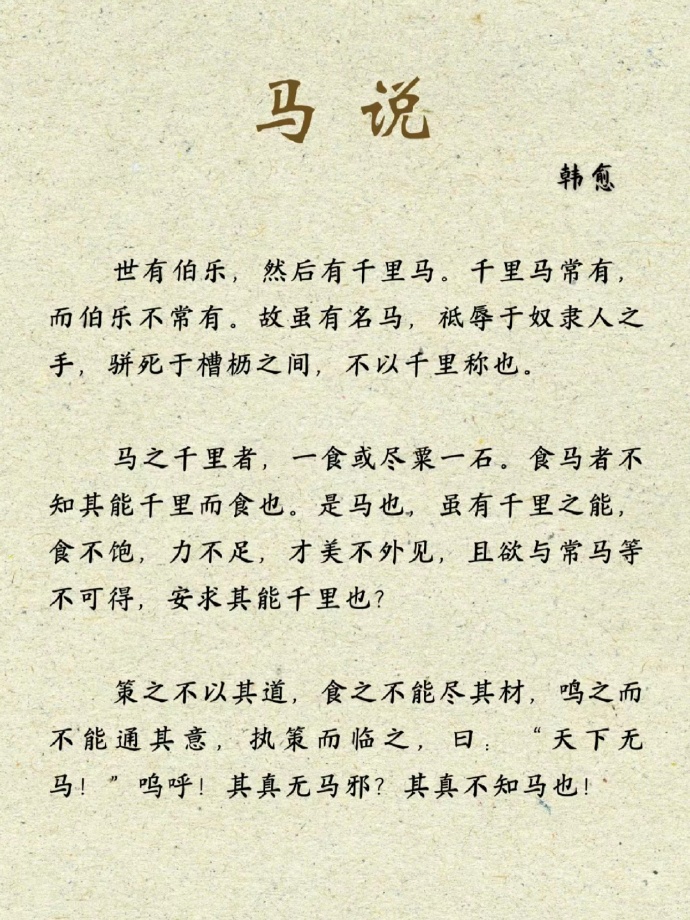 马说
韩愈
世有伯乐，然后有千里马。千里马常有，
而伯乐不常有。故虽有名马，祗辱于奴隶人之
手，骈死于槽枥之间，不以千里称也。
马之千里者，一食或尽粟一石。食马者不
知其能千里而食也。是马也，虽有千里之能，
食不饱，力不足，才美不外见，且欲与常马等
不可得，安求其能千里也？
策之不以其道，食之不能尽其材，鸣之而
不能通其意，执策而临之，曰：“天下无
马！”呜呼！其真无马邪？其真不知马也！